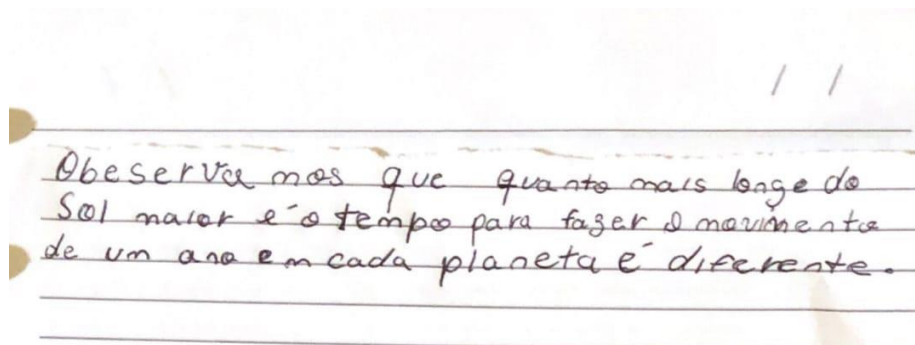 / /
Obeserva mos que quanto mais longe do
Sol maior é o tempo para fazer o movimento
de um ano em cada planeta é diferente.